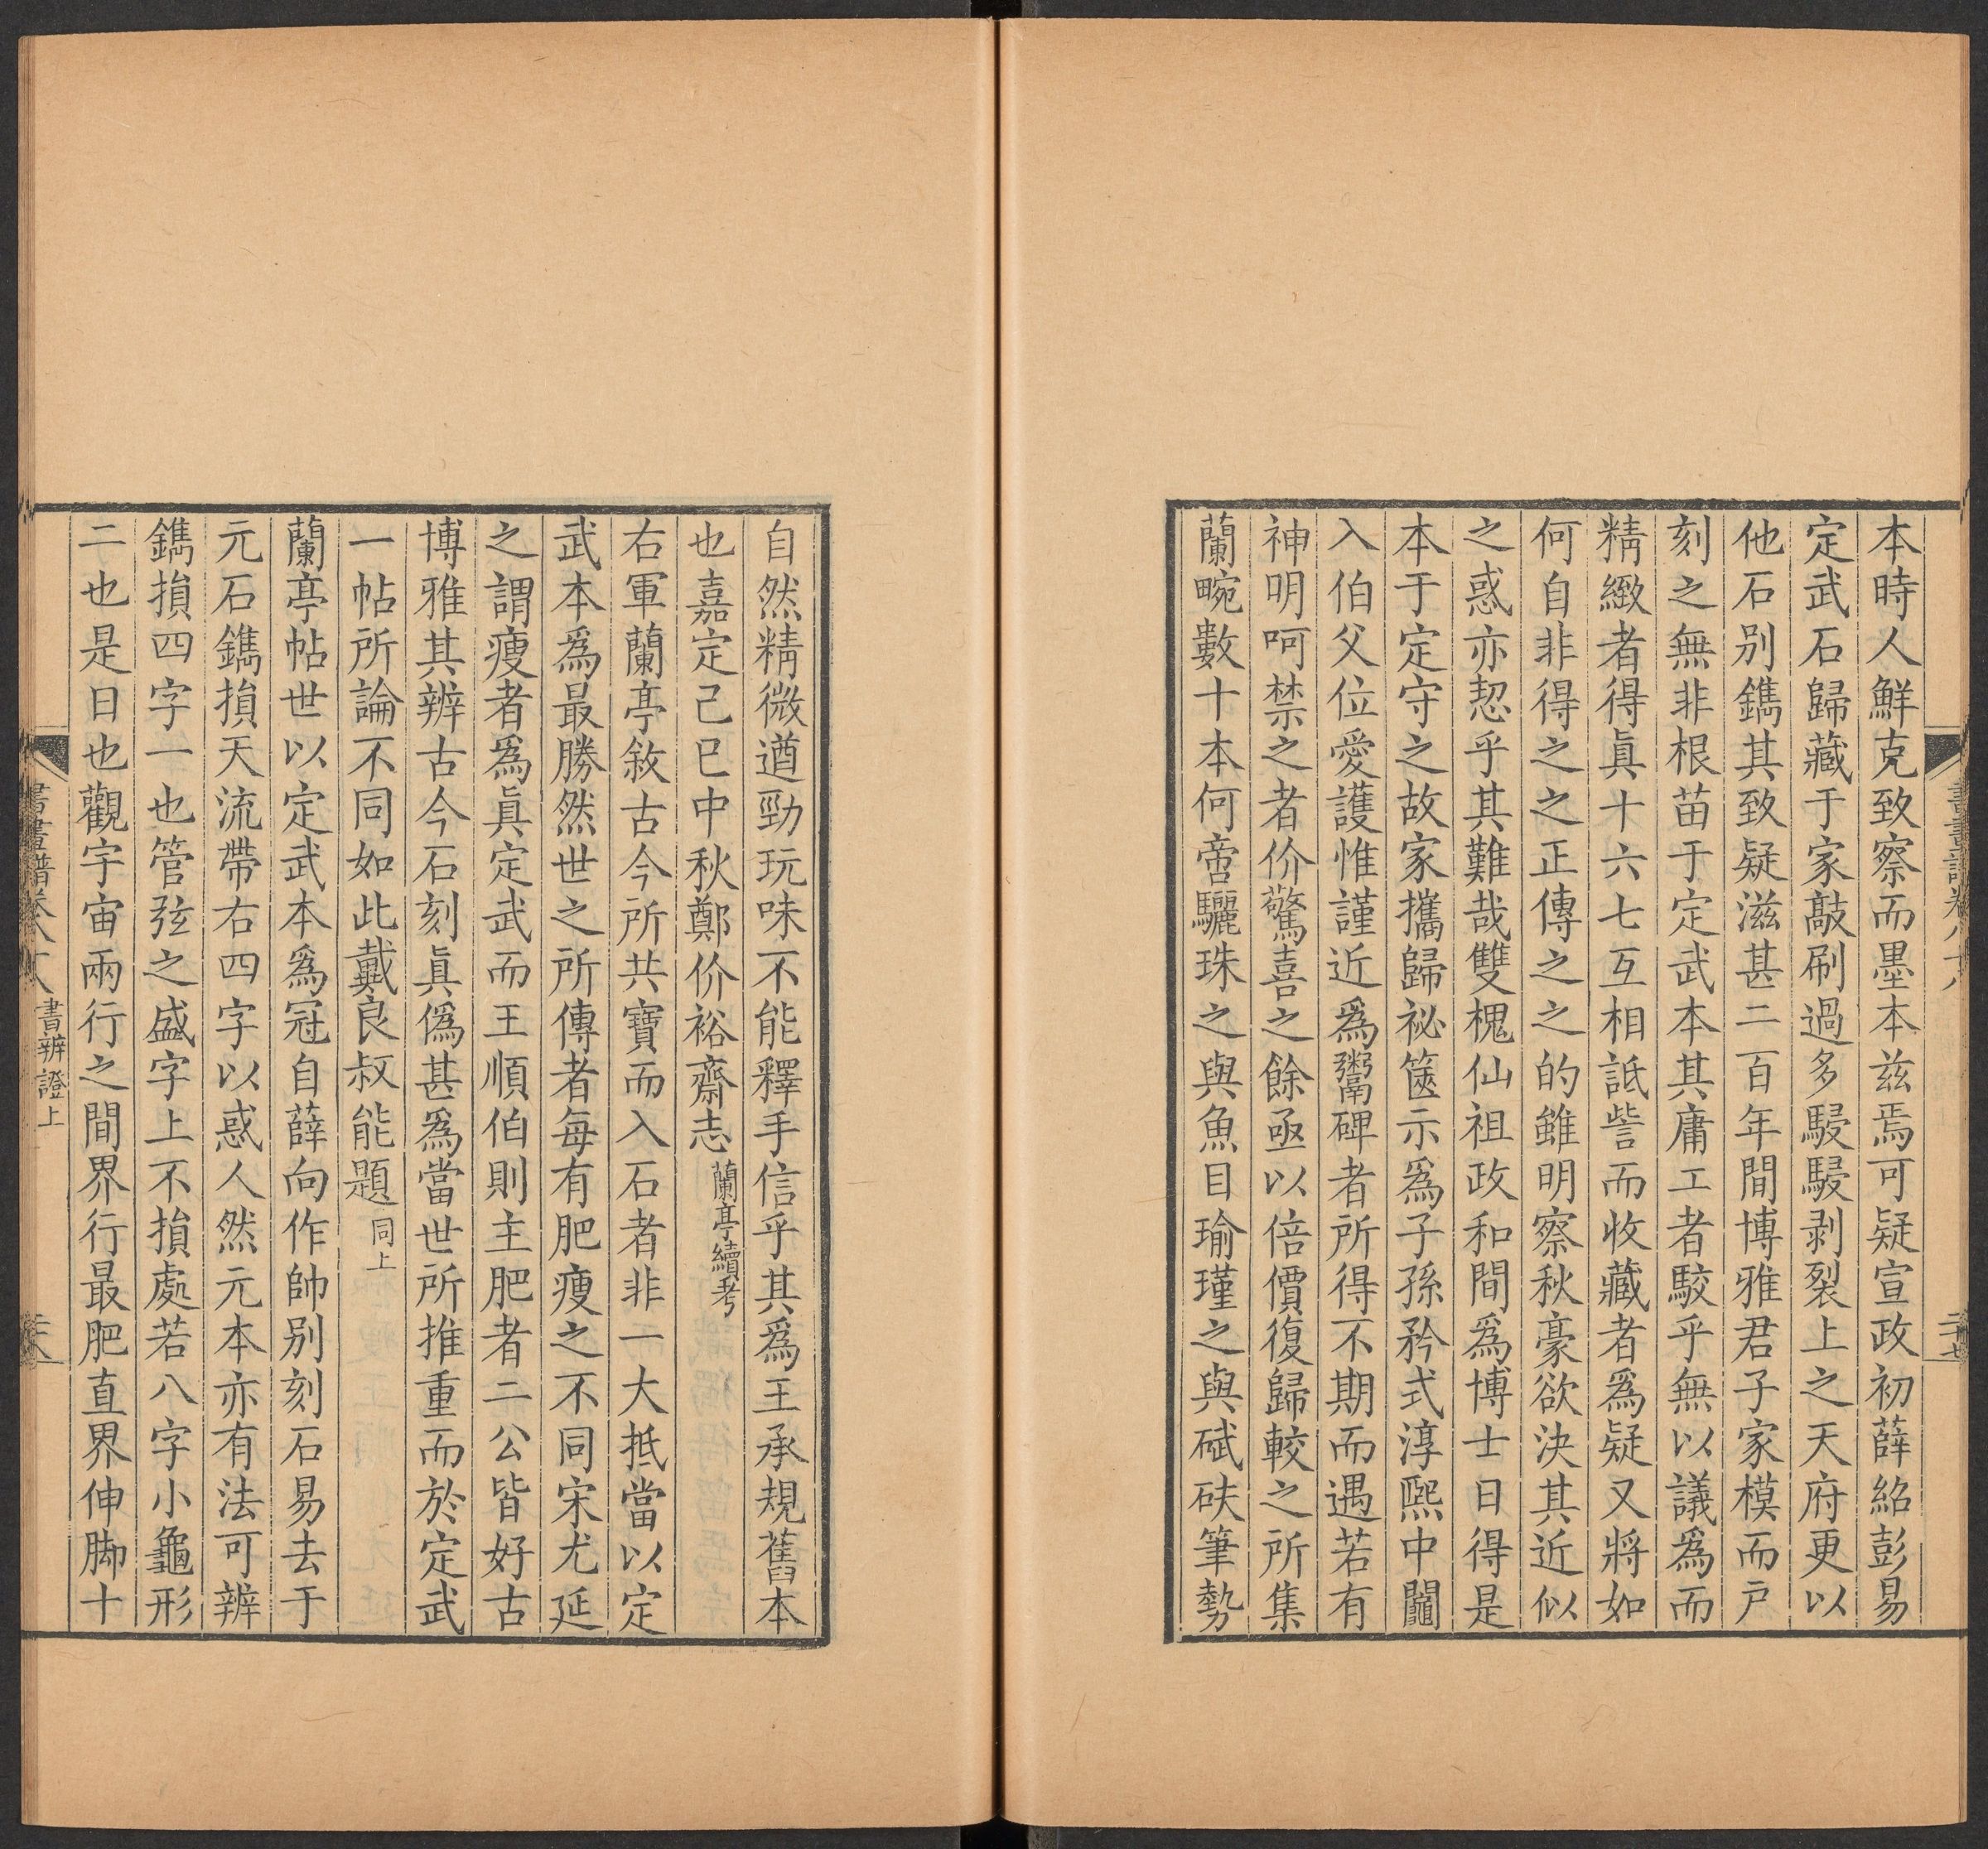 本時人鮮克致察而墨本兹焉可疑宣政初薛紹彭易
定武石歸藏于家敲刷過多駸駸剥裂上之天府更以
他石别鐫其致疑滋甚二百年間博雅君子家模而戸
刻之無非根苗于定武本其庸工者駮乎無以議爲而
精緻者得眞十六七互相詆訾而收藏者爲疑又將如
何自非得之之正傳之之的雖明察秋豪欲決其近似
之惑亦恝乎其難哉雙槐仙祖政和間爲博士日得是
本于定守之故家攜歸祕篋示爲子孫矜式淳熙中鬮
入伯父位愛護惟謹近爲鬻碑者所得不期而遇若有
神明呵禁之者价驚喜之餘亟以倍價復歸較之所集
蘭畹數十本何啻驪珠之與魚目瑜瑾之與碔砆筆勢
書畫譜卷八十八
二十七
自然精微遒勁玩味不能釋手信乎其爲王承規舊本
也嘉定己巳中秋鄭价裕齋志 蘭亭續考
右軍蘭亭敘古今所共寶而入石者非一大抵當以定
武本爲最勝然世之所傳者每有肥瘦之不同宋尤延
之謂瘦者爲眞定武而王順伯則主肥者二公皆好古
博雅其辨古今石刻眞僞甚爲當世所推重而於定武
一帖所論不同如此戴良叔能題 同上
蘭亭帖世以定武本爲冠自薛向作帥别刻石易去于
元石鐫損天流帶右四字以惑人然元本亦有法可辨
鐫損四字一也管弦之盛字上不損處若八字小龜形
二也是日也觀宇宙兩行之間界行最肥直界伸脚十
書畫譜卷八十八 書辨證上